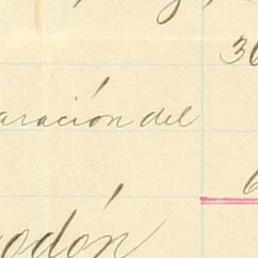 y,
30
aración del
6
odón